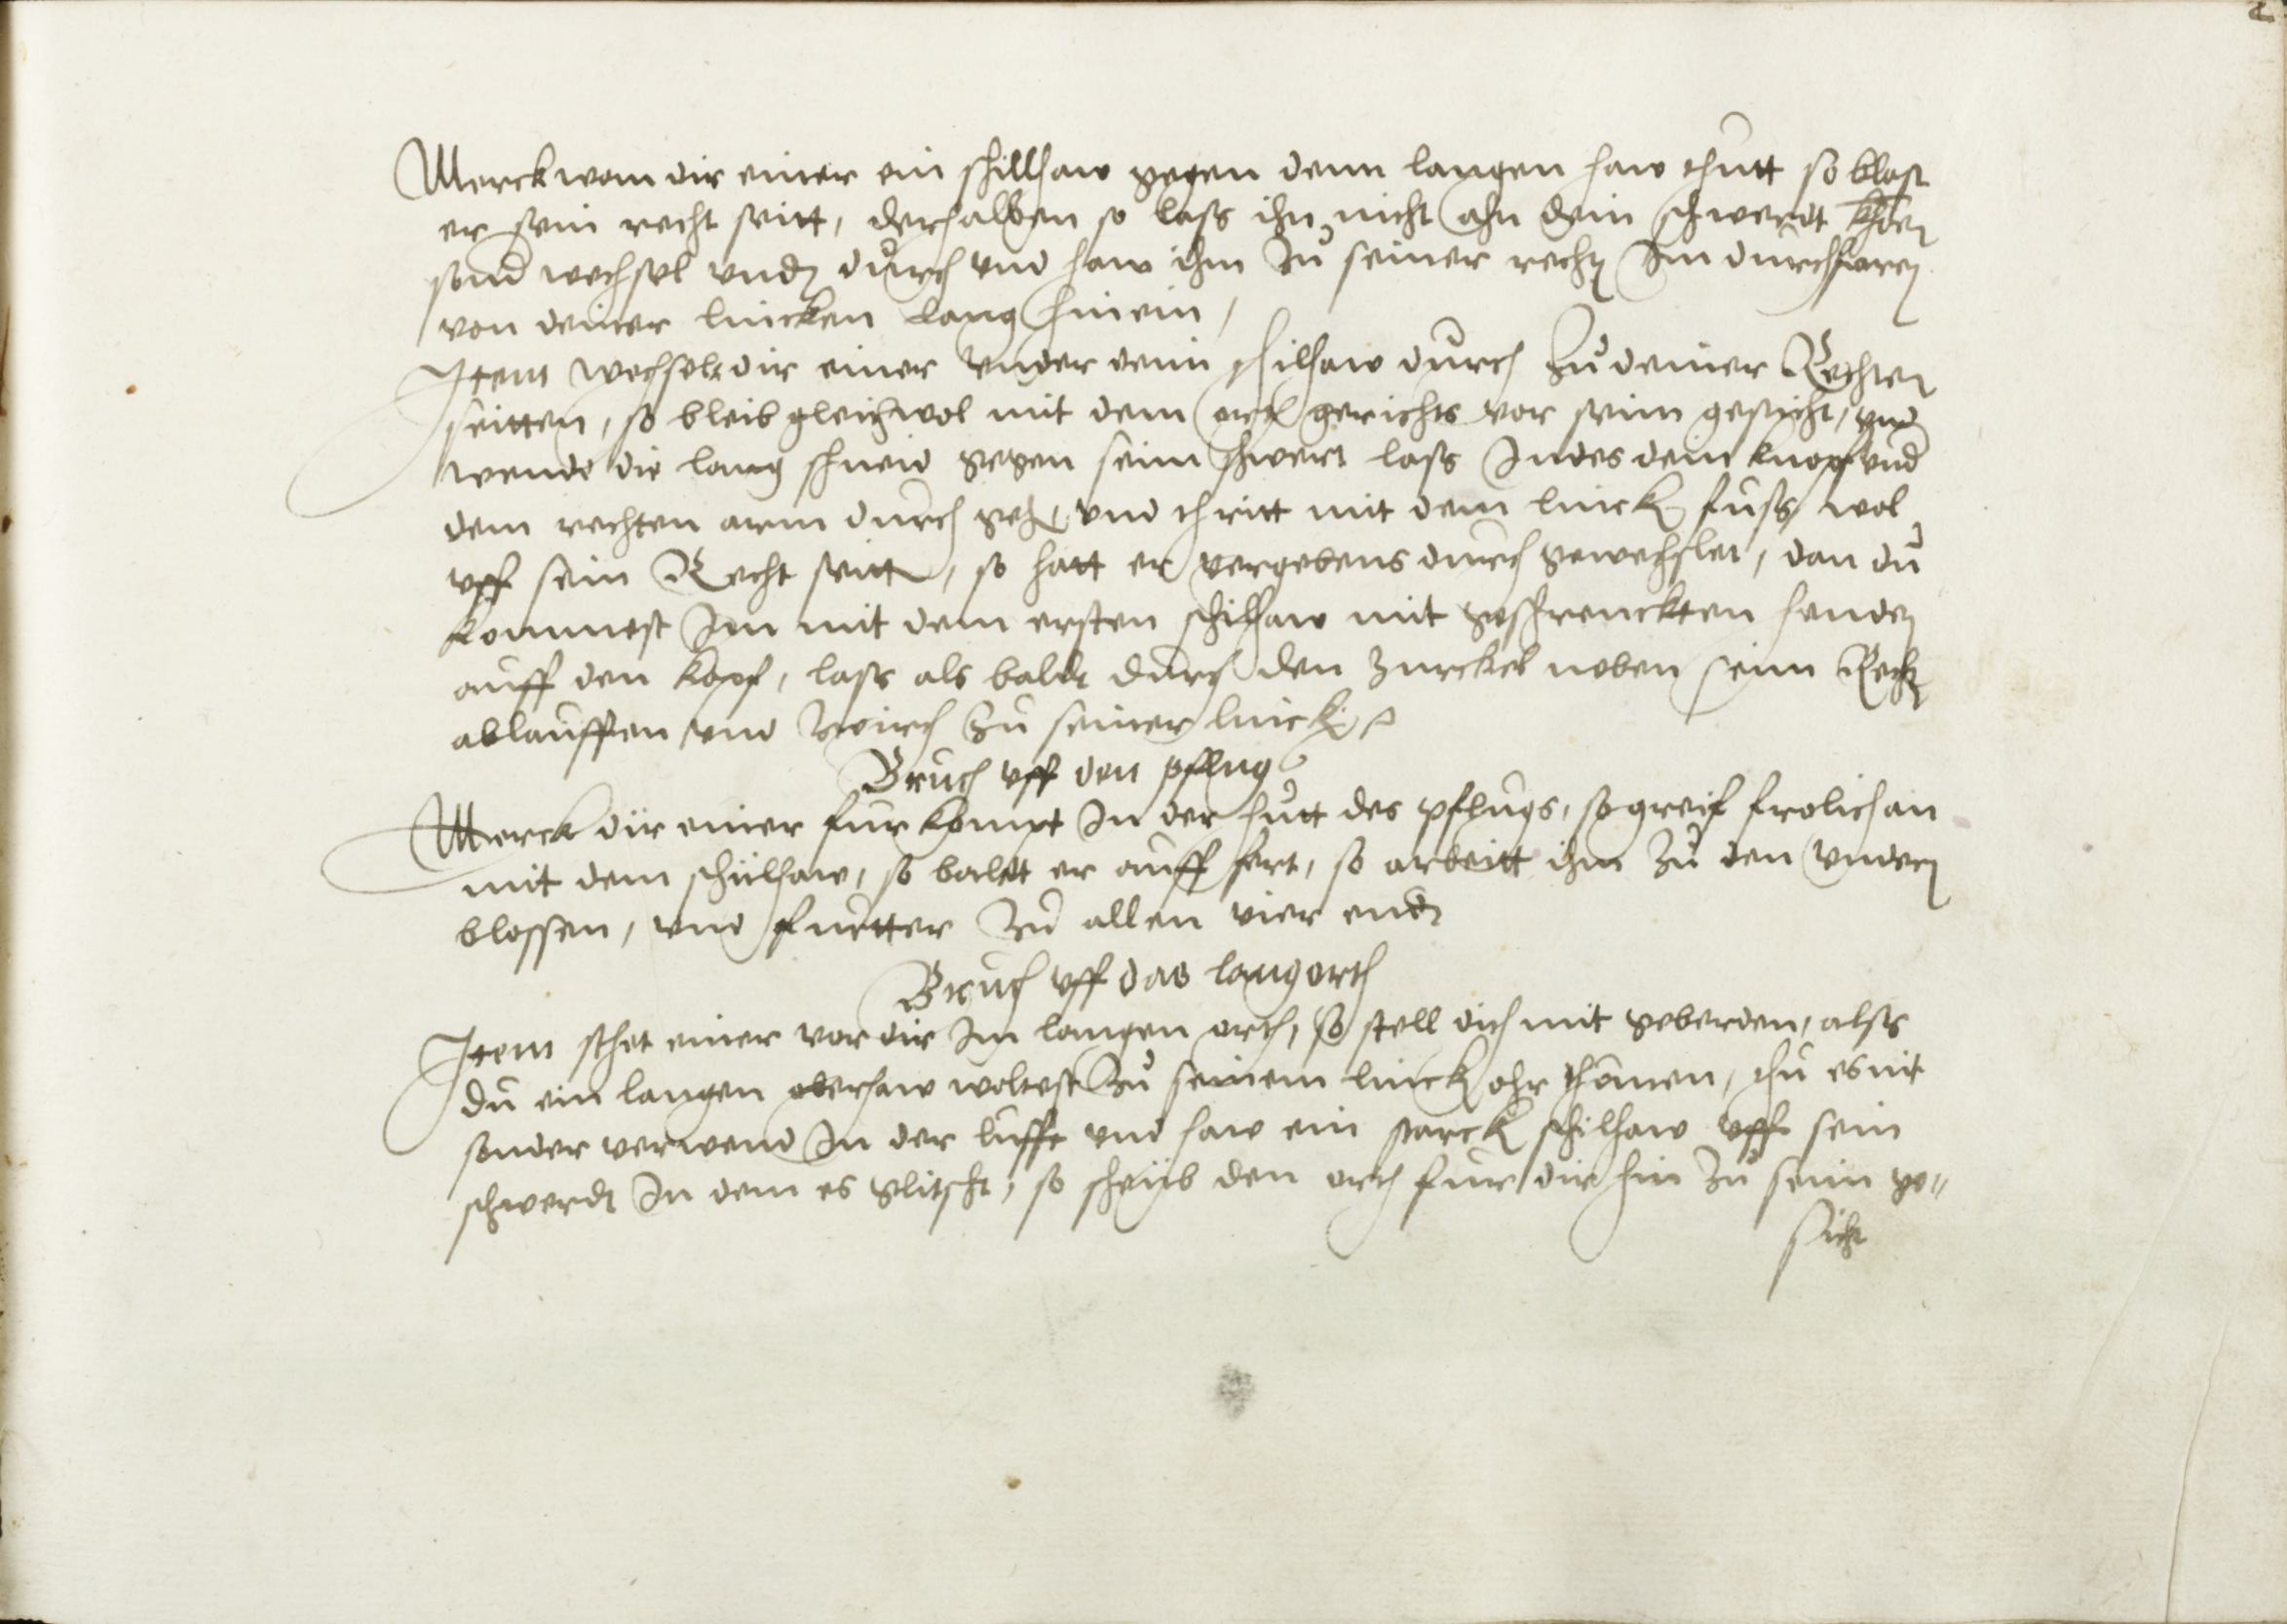 Merck wann dir einer ein schillhaw gegen denn langen haw thutt so blost
er sein recht seitt, derhalben so lass ihn nicht ahn dein schwerdt
sond wechsel undn durch und haw ihm zu seiner rechtn Im durchfarn
von deiner lincken lang hinein,
Item wechselt dir einer under deim schilhaw durch zu deiner Rechten
seitten, so bleib gleichwol mit dem orth gerichts vor seim gesicht, und
wende die lang schneid gegen seim schwert lass Indes dein knopf und
dem rechten arm durch gehn und thritt mit dem linckn fuss wol
uff sein Recht seitt, so hatt er vergebens durch gewechslet, dan du
kommest Im mit dem ersten schilhaw mit geschrenckten henden
auff den kopf, lass als baldt durch den Zurckel neben seim Rechtn
ablauffen und zwirch zu seiner linckn
Bruch uff den pflug
Merck dir einer fur kompt In der hutt des pflugs, so greif frolich an
mit dem schilhaw, so baldt er auff fert, so arbeitt ihm zu den undern
blossen, und furtter zu allen vier endn
Bruch uff das langorth
Item sthet einer vor dir Im langen orth, so stell dich mit geberden, alss
du ein langen oberhaw woltest zu seinem linckn ohr thonnen, thu es nit
sonder verwend In der lufft und haw ein starckn schilhaw uff sein
schwerdt In dem es glitscht, so scheub den orth fur dir hin zu seim ge=
sicht